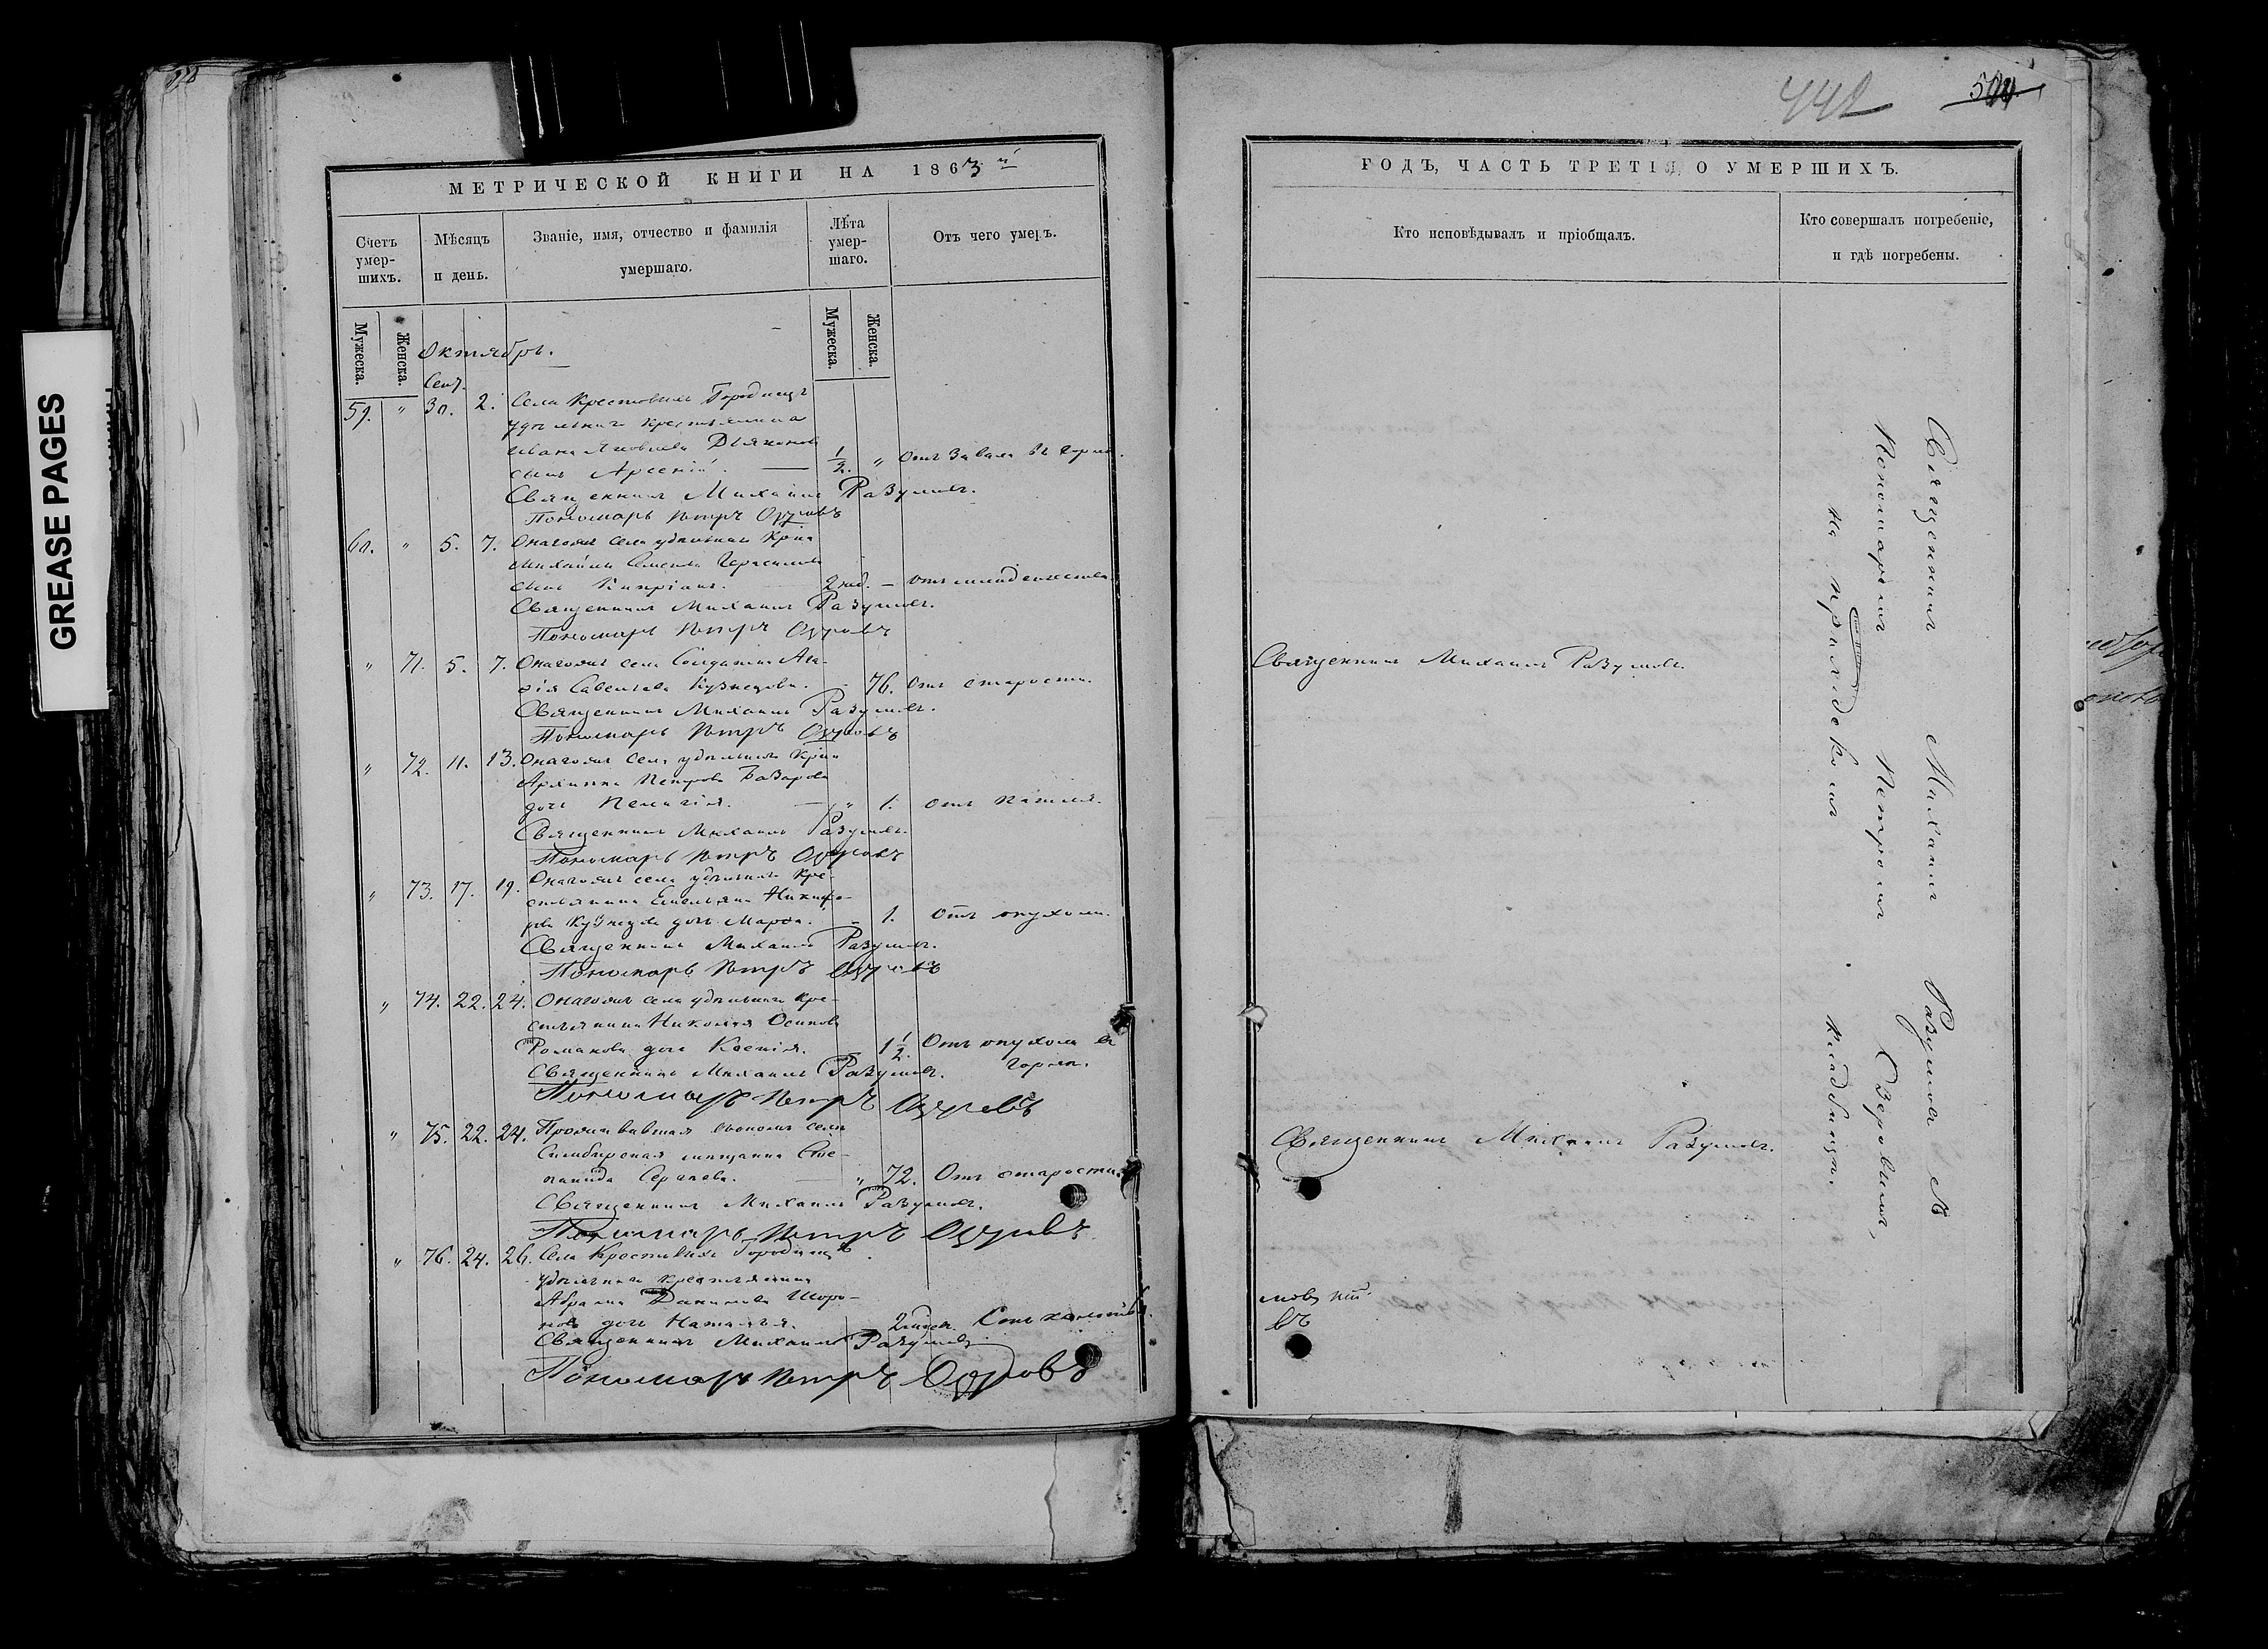 GREASE PAGES
МЕТРИЧЕСКОЙ КНИГИ НА 1863й
Счетъ умер-шихъ.
Мѣсяцъ и день.
Званіе, имя, отчество и фамилія умершаго.
Лѣта умер-шаго.
Отъ чего умеръ.
Мужеска.
Женска.
Мужеска.
Женска.
Октябрь.
Сент.
59. " 30. 2. Села Крестовыхъ Городищъ
удѣльнаго крестьянина
Ивана Яковлева Дьяконова
сынъ Арсеній. — 1/2. " Отъ завала въ горлѣ.
Священникъ Михаилъ Разумовъ.
Пономарь Петръ
60. " 5. 7. Онагожъ села удѣльнаго Кр-на
Михайлы Семенова Герасимова
сынъ Кипріанъ. 2 нед. — отъ младенчества
Священникъ Михаилъ Разумовъ.
Пономарь Петръ
" 71. 5. 7. Онагожъ села Солдатка Ага-
фія Савельева Кузнецова. - 76. Отъ старости.
Священникъ Михаилъ Разумовъ.
Пономарь Петръ
" 72. 11. 13. Онагожъ села удѣльнаго Кр-на
Архиппа Петрова Базарова
дочь Пелагія. — " 1. Отъ кашля.
Священникъ Михаилъ Разумовъ.
Пономарь Петръ
" 73. 17. 19. Онагожъ села удѣльнаго Кре-
стьянина Емельяна Никифо-
рова Кузнецова дочь Марфа. - 1. Отъ опухоли.
Священникъ Михаилъ Разумовъ.
Пономарь Петръ
" 74. 22. 24. Онагожъ села удѣльнаго Кре-
стьянина Николая Осипова
Романова дочь Ксенія. 1 1/2. Отъ опухоли въ
горлѣ.
Священникъ Михаилъ Разумовъ.
Пономарь Петръ
" 75. 22. 24. Проживавшая въ ономъ селѣ
Симбирская мѣщанка Сте-
панида Сергѣева. — " 72. Отъ старости.
Священникъ Михаилъ Разумовъ.
Пономарь Петръ
" 76. 24. 26. Села Крестовыхъ Городищъ
удѣльнаго крестьянина
Абрама Данилова Шоро-
нова дочь Наталья. 2 мѣсяц.
Священникъ Михаилъ Разумовъ
Пономарь Петръ
442
ГОДЪ, ЧАСТЬ ТРЕТІЯ, О УМЕРШИХЪ.
Кто исповѣдывалъ и пріобщалъ.
Кто совершалъ погребеніе, и гдѣ погребены.
Священникъ Михаилъ Разумовъ.
Священникъ Михаилъ Разумовъ.
Священникъ Михаилъ Разумовъ съ
Пономаремъ Петромъ
на приходскомъ кладбищѣ.